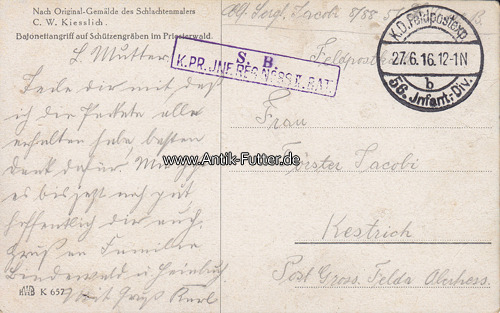 Nach Original-Gemälde des Schlachtenmalers
C. W. Kiesslich.
Bajonettangriff auf Schützengräben im Priesterwald.
Abs. Sergt. Jacobi 8/88
Feldpostkarte
S. B.
K. PR. JNF. REG. No 88 II. BAT.
K.D. Feldpostexp.
27.6.16.12-1N
b
56. Jnfant.-Div.
L. Mutter.
Teile dir mit daß
ich die Pakete alle
erhalten habe, besten
Dank dafür. Mir geht
es bis jetzt noch gut
hoffentlich dir auch.
Gruß an Familie
Lindenwald u. Heinbuch
Mit Gruß Karl
www.Antik-Futter.de
Frau
Förster Jacobi
Kestrich
Post Gross. Felda Oberhess.
K 652